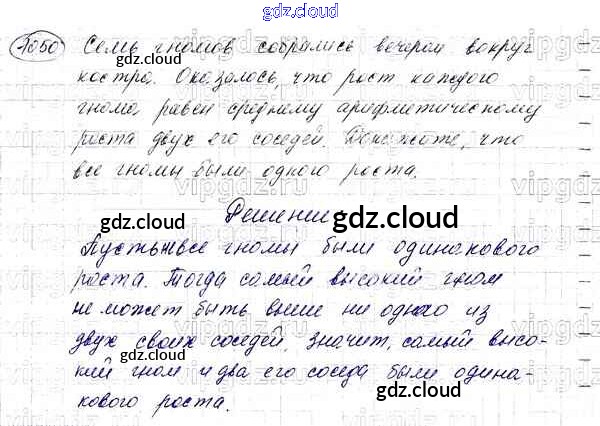 gdz.cloud
1050 Семь гномов собрались вечером вокруг
gdz.cloud
костра. Оказалось, что рост каждого
гнома равен среднему арифметическому
роста двух его соседей. Докажите, что
все гномы были одного роста.
gdz.cloud
Решение
gdz.cloud
Пусть не все гномы были одинакового
роста. Тогда самый высокий гном
не может быть выше ни одного из
двух своих соседей, значит, самый высо-
gdz.cloud
кий гном и два его соседа были одина-
gdz.cloud
кового роста.
gdz.cloud